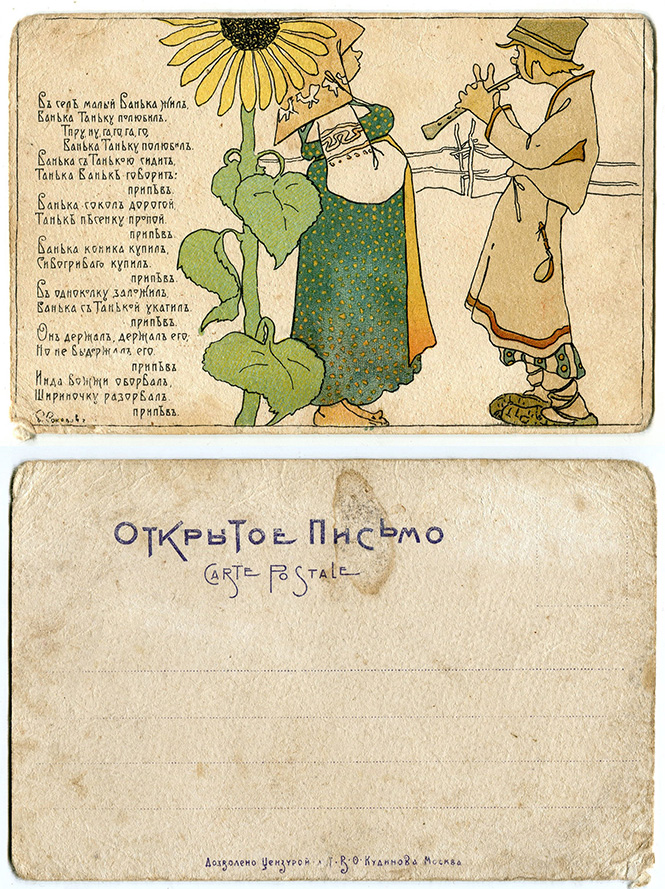 Въ селѣ малый Ванька жилъ,
Ванька Таньку полюбилъ.
Тпру, ну, га, го, га, го,
Ванька Таньку полюбилъ.
Ванька съ Танькою сидитъ,
Танька Ванькѣ говоритъ:
припѣвъ.
Ванька соколъ дорогой,
Танькѣ пѣсенку пропой.
припѣвъ.
Ванька коника купилъ,
Сивогриваго купилъ.
припѣвъ.
Въ одноколку заложилъ,
Ванька съ Танькой укатилъ.
припѣвъ.
Онъ держалъ, держалъ его,
Но не выдержалъ его.
припѣвъ
Инда вожжи оборвалъ,
Шириночку разорвалъ.
припѣвъ.
Открытое Письмо
Carte Postale
Дозволено Цензурой Т. В. Ѳ. Кудинова Москва